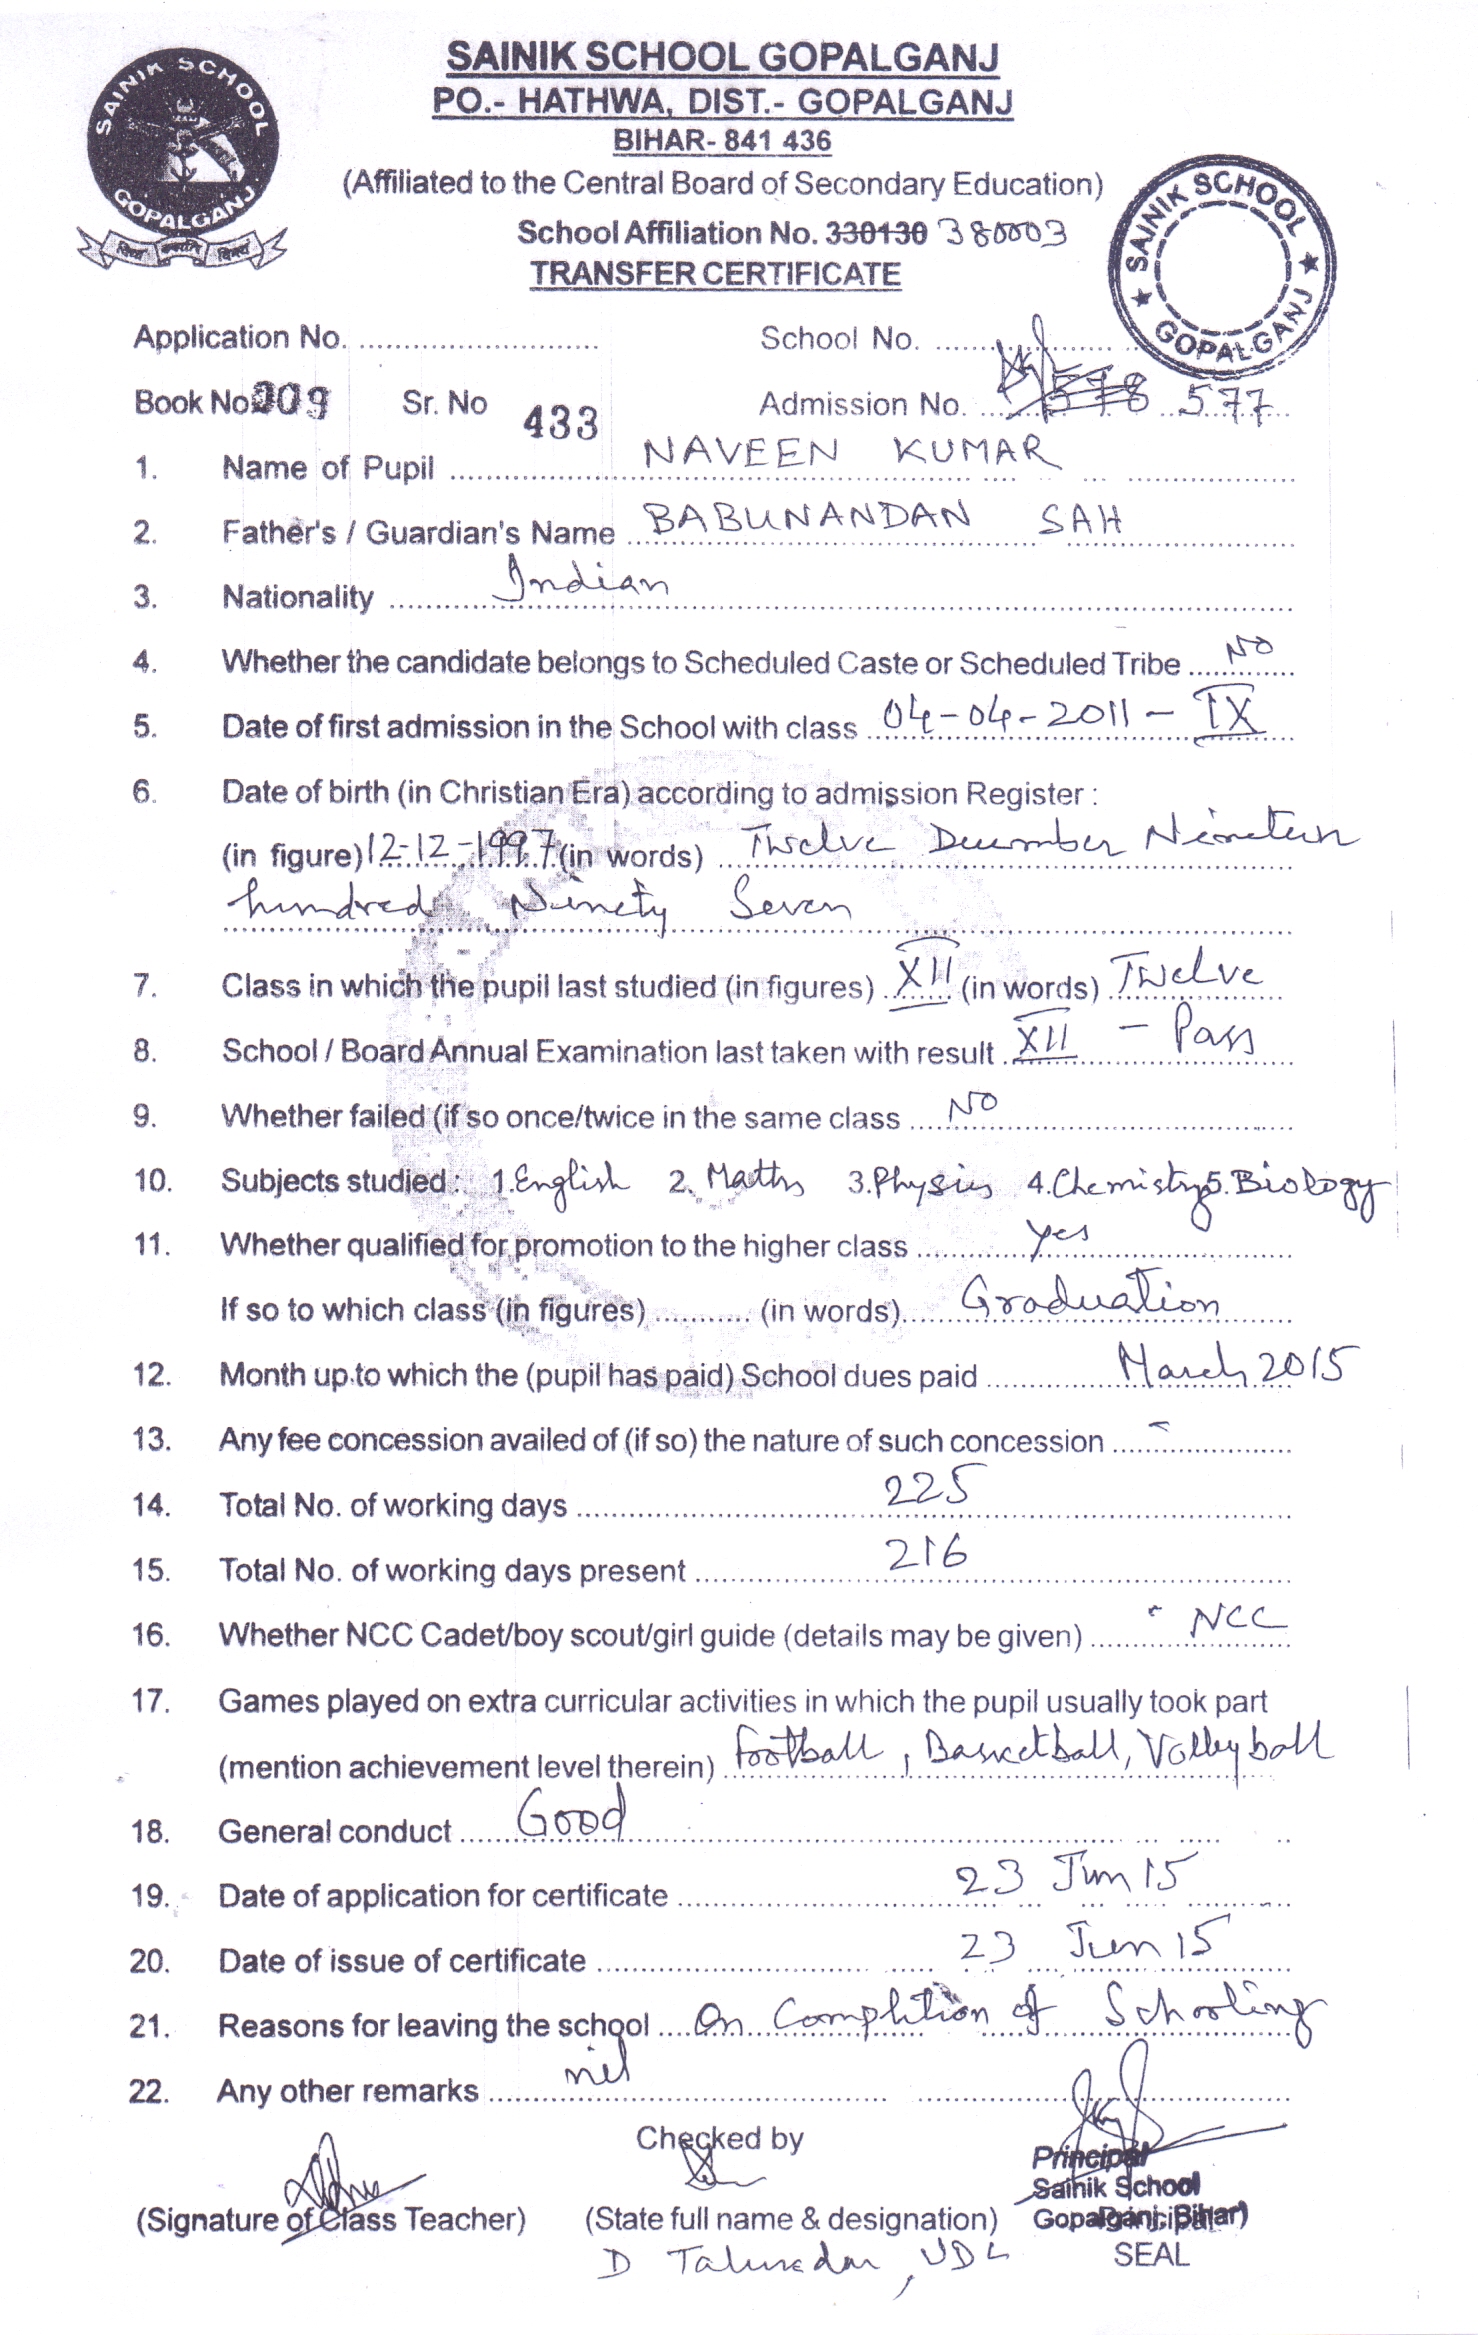 SAINIK SCHOOL GOPALGANJ
SAINIK SCHOOL GOPALGANJ
PO.- HATHWA, DIST.- GOPALGANJ
BIHAR- 841 436
(Affiliated to the Central Board of Secondary Education)
School Affiliation No. 330130 380003
TRANSFER CERTIFICATE
SAINIK SCHOOL ★ GOPALGANJ ★
Application No. School No.
Book No. 009 Sr. No 433 Admission No. 578 577
1. Name of Pupil NAVEEN KUMAR
2. Father's / Guardian's Name BABUNANDAN SAH
3. Nationality Indian
4. Whether the candidate belongs to Scheduled Caste or Scheduled Tribe NO
5. Date of first admission in the School with class 04-04-2011 - IX
6. Date of birth (in Christian Era) according to admission Register :
(in figure) 12-12-1997 (in words) Twelve December Nineteen
hundred Ninety Seven
7. Class in which the pupil last studied (in figures) XII (in words) Twelve
8. School / Board Annual Examination last taken with result XII - Pass
9. Whether failed (if so once/twice in the same class NO
10. Subjects studied : 1.English 2. Maths 3.Physics 4.Chemistry 5.Biology
11. Whether qualified for promotion to the higher class Yes
If so to which class (in figures) (in words) Graduation
12. Month up to which the (pupil has paid) School dues paid March 2015
13. Any fee concession availed of (if so) the nature of such concession -
14. Total No. of working days 225
15. Total No. of working days present 216
16. Whether NCC Cadet/boy scout/girl guide (details may be given) NCC
17. Games played on extra curricular activities in which the pupil usually took part
(mention achievement level therein) Football, Basketball, Volleyball
18. General conduct Good
19. Date of application for certificate 23 Jun 15
20. Date of issue of certificate 23 Jun 15
21. Reasons for leaving the school On Completion of Schooling
22. Any other remarks nil
Checked by
Principal
Sainik School
(Signature of Class Teacher) (State full name & designation) Gopalganj (Bihar)
D Talukdar, UDC SEAL